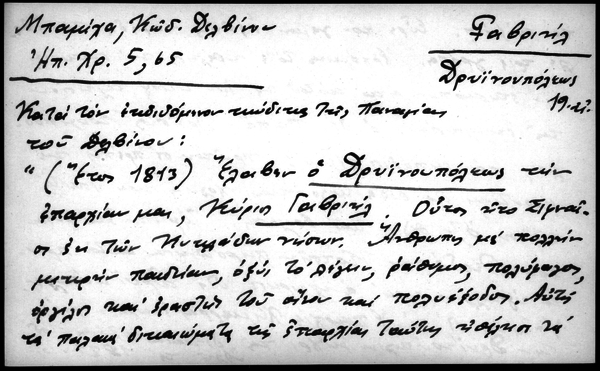 Μπαμίχα, Κῶδ. Δελβίνου
Γαβριήλ
Ἠπ. Χρ. 5, 65
Δρυϊνουπόλεως
19 αἰ.
Κατὰ τὸν ἐκδιδόμενον κώδικα τῆς Παναγίας
τοῦ Δελβίνου:
"(Ἔτος 1813) Ἔλαβεν ὁ Δρυϊνουπόλεως τὴν
ἐπαρχίαν μας, Κύριος Γαβριήλ. Οὗτος ἦτο
σι ἐκ τῶν Κυκλάδων νήσων. Ἄνθρωπος μὲ πολλὴν
μικρὴν παιδείαν, ὀξὺς τὸ λέγειν, ῥάθυμος, πολύφαγος,
ὀργίλος καὶ ἐραστὴς τοῦ οἴνου καὶ πολυέξοδος. Αὐτὸς
τὰ παλαιὰ δικαιώματα τῆς ἐπαρχίας ταύτης τὰ